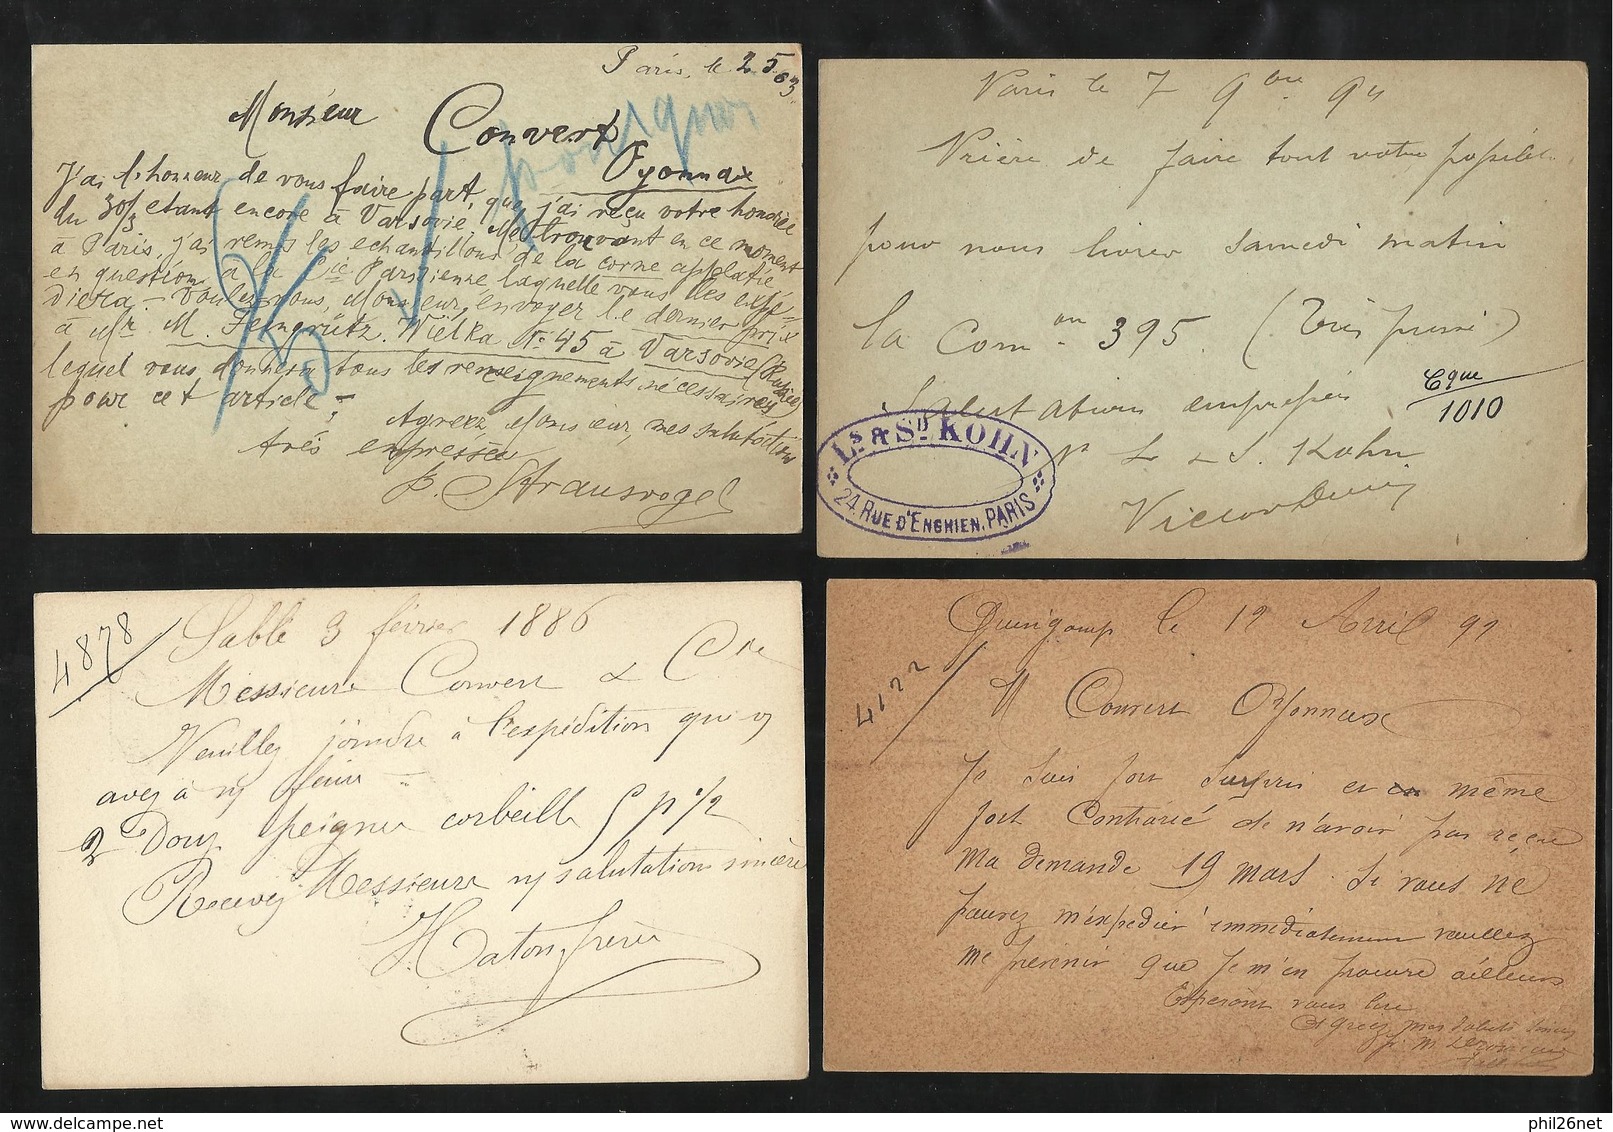 Paris, le 2.5.03
Monsieur
Convert
Oyonnax
J'ai l'honneur de vous faire part, que j'ai reçu votre honorée
du 30/3 etant encore à Varsovie. Me trouvant en ce moment
à Paris, j'ai remis les echantillons de la corne applatie
en question à la Cie Parisienne laquelle vous les expé-
diera - Voulez vous, Monsieur, envoyer le dernier prix
à Mr M. Feingrütz. Wielka No 45 à Varsovie (Russie)
lequel vous donnera tous les renseignements nécessaires
pour cet article;
Agreez, Monsieur, mes salutations
très empressées
p. Strausvogel
Paris le 7 9bre 94
Prière de faire tout votre possible
pour nous livrer samedi matin
la Comon 395. (Très pressé)
Salutations empressées
Cque
1010
pr L. & S. Kohn
Victor
Ls & Sd KOHN
24, RUE D'ENGHIEN, PARIS
4878
Sablé 3 février 1886
Messieurs Convert & Cie
Veuillez joindre à l'expédition que v/
avez à n/ faire -
2 Douz peignes corbeille
Recevez Messieurs n/ salutations sincères
Haton frères
4122
Guingamp le 12 Avril 92
M Convert Oyonnax
Je suis fort surpris et même
fort contrarié de n'avoir pas reçu
ma demande 19 mars. Si vous ne
pouvez m'expédier immédiatement veuillez
me prévenir que je m'en procure ailleurs
Espérant vous lire
Agréez mes saluts